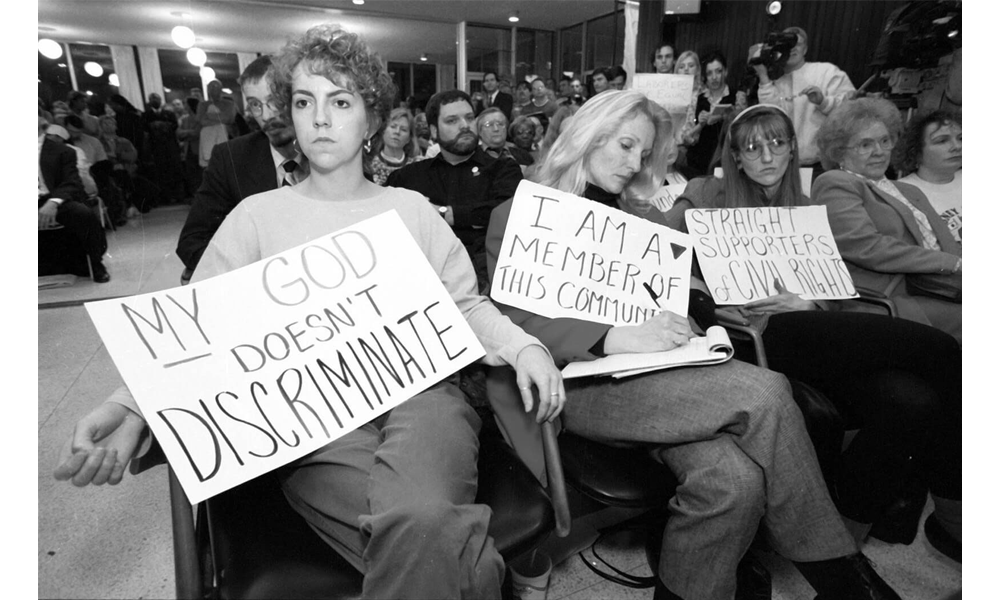 MY GOD
DOESN'T
DISCRIMINATE
I AM A
MEMBER OF
THIS COMMUNI
STRAIGHT
SUPPORTERS
of CIVIL RIGHTS